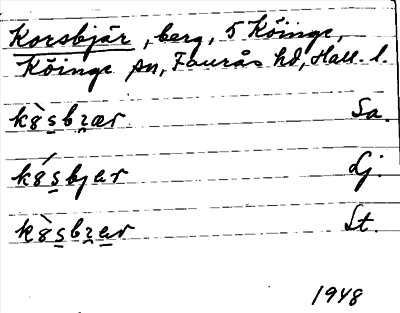 Korsbjär, berg, 5 Köinge,
Köinge sn, Faurås hd, Hall. l.
kꝏ̀s̱bɀær Sa.
kꝏ́s̱bjær Lj.
kꝏ̀s̱bɀa̱r St.
1948